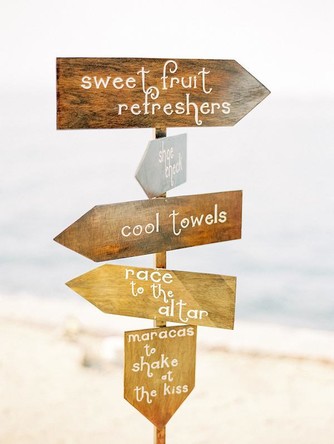 sweet fruit
refreshers
shoe
check
cool towels
race
to the
altar
maracas
to
shake
at
the kiss